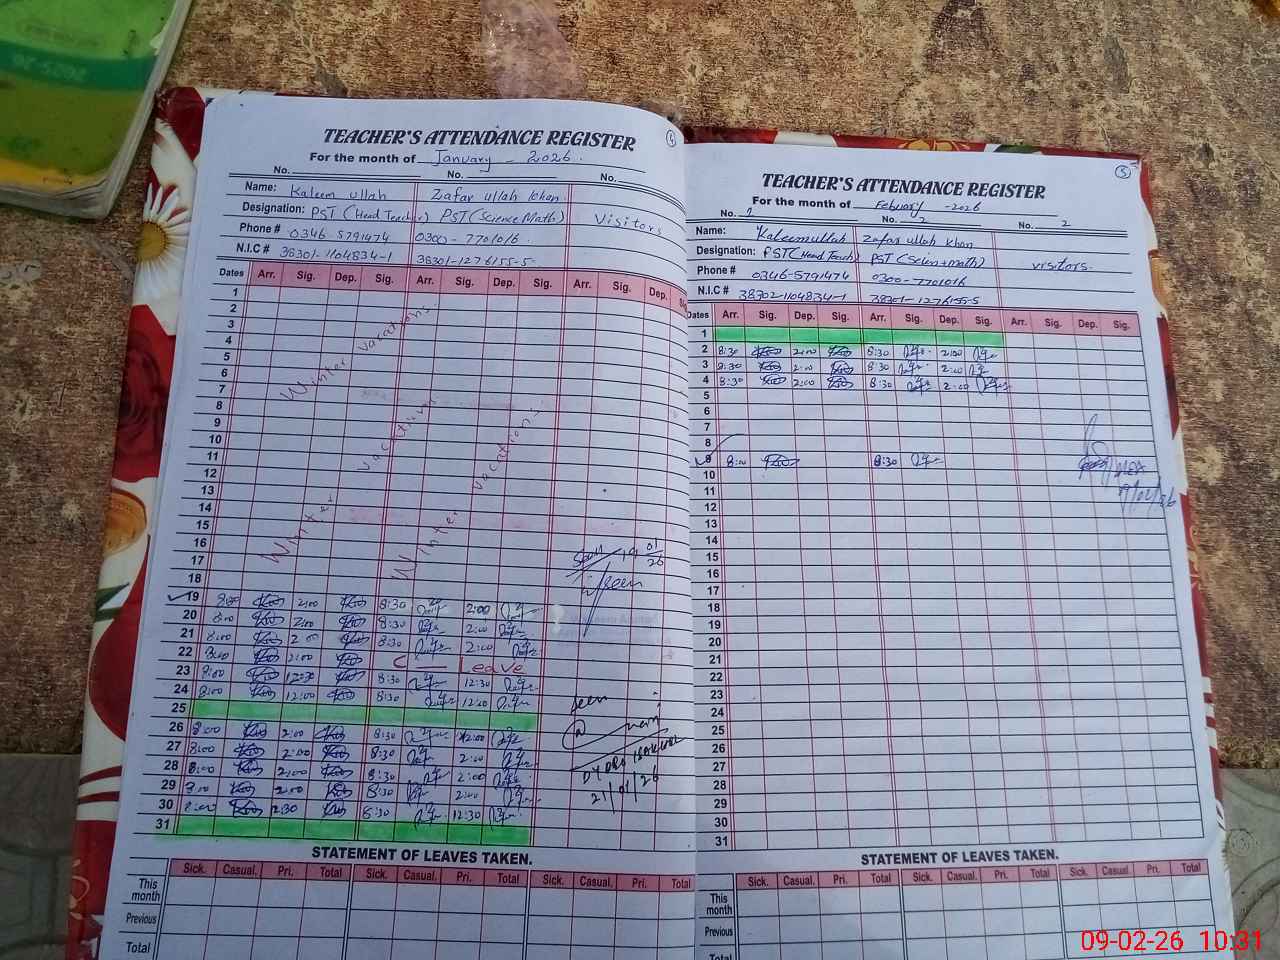 TEACHER'S ATTENDANCE REGISTER
4
For the month of January - 2026.
No. No. No.
Name: Kaleem ullah Zafar ullah khan.
Designation: PST (Head Teacher) PST (Science Math) Visitors
Phone # 0346-5791474 0300-7701016.
N.I.C # 38301-1104834-1 38301-1276155-5
Dates Arr. Sig. Dep. Sig. Arr. Sig. Dep. Sig. Arr. Sig. Dep. Sig.
1
2
3
4
5
6
7
8
9
10
11
12
13
14
15
16
17
18
Winter vacations
Winter vacations
Winter vacations
19 8:00 2:00 8:30 2:00
20 8:00 2:00 8:30 2:00
21 8:00 2:00 8:30 2:00
22 8:00 2:00 C - Leave
23 8:00 12:30 8:30 12:30
24 8:00 12:00 8:30
25
26 8:00 2:00 8:30 2:00
27 8:00 2:00 8:30 2:00
28 8:00 2:00 8:30 2:00
29 8:00 2:00 8:30 2:00
30 8:00 2:30 8:30 12:30
31
19 01/26
Seen
Seen
21/01/26
STATEMENT OF LEAVES TAKEN.
Sick. Casual. Pri. Total Sick. Casual. Pri. Total Sick. Casual. Pri. Total
This month
Previous
Total
5
TEACHER'S ATTENDANCE REGISTER
For the month of February -2026
No. 1 No. 2 No. 2
Name: Kaleemullah zafar ullah khan
Designation: PST (Head Teach) PST (Scien+math) visitors.
Phone # 0346-5791474 0300-7701016
N.I.C # 38302-1104834-1 38301-1276155-5
Dates Arr. Sig. Dep. Sig. Arr. Sig. Dep. Sig. Arr. Sig. Dep. Sig.
1
2 8:30 2:00 8:30 2:00
3 8:30 2:00 8:30 2:00
4 8:30 2:00 8:30 2:00
5
6
7
8
9 8:00 8:30
10
11
12
13
14
15
16
17
18
19
20
21
22
23
24
25
26
27
28
29
30
31
STATEMENT OF LEAVES TAKEN.
Sick. Casual. Pri. Total Sick. Casual. Pri. Total Sick. Casual. Pri. Total
This month
Previous
Total
09-02-26 10:31